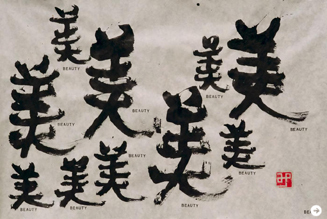 美
BEAUTY
美
BEAUTY
美
BEAUTY
美
BEAUTY
美
BEAUTY
美
BEAUTY
美
BEAUTY
美
BEAUTY
美
BEAUTY
美
BEAUTY